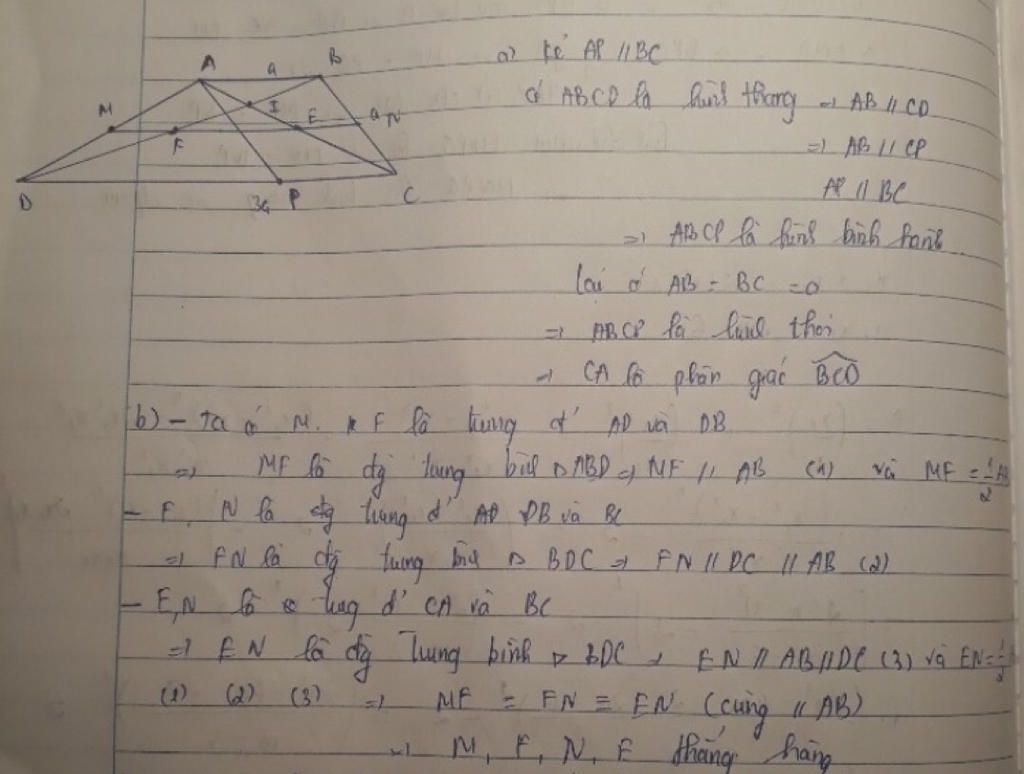 A
a
B
M
I
E
a
N
F
D
3a
P
C
a) kẻ AP // BC
Có ABCD là hình thang => AB // CD
=> AB // CP
AP // BC
=> ABCP là hình bình hành
lại có AB = BC = a
=> ABCP là hình thoi
=> CA là phân giác BCD
b) - Ta có M, F là trung đ' AD và DB
=> MF là đg trung bình △ ABD => MF // AB (1) và MF = 1/2 AB
- F, N là đg trung đ' DB và BC
=> FN là đg trung bình △ BDC => FN // DC // AB (2)
- E, N là trug đ' CA và BC
=> EN là đg Trung bình △ BDC => EN // AB // DC (3) và EN = 1/2
(1) (2) (3) => MF ≡ FN ≡ EN (cùng // AB)
=> M, F, N, E thẳng hàng